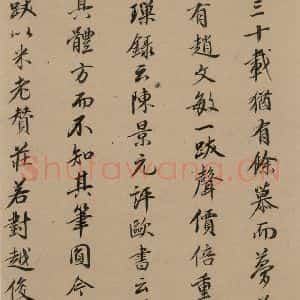 三十載猶有餘慕而夢
有趙文敏一跋聲價倍重
璅錄云陳景元評歐書云
具體方而不知其筆圓今
跋以米老贊莊若對越俊
Shufawang.CN